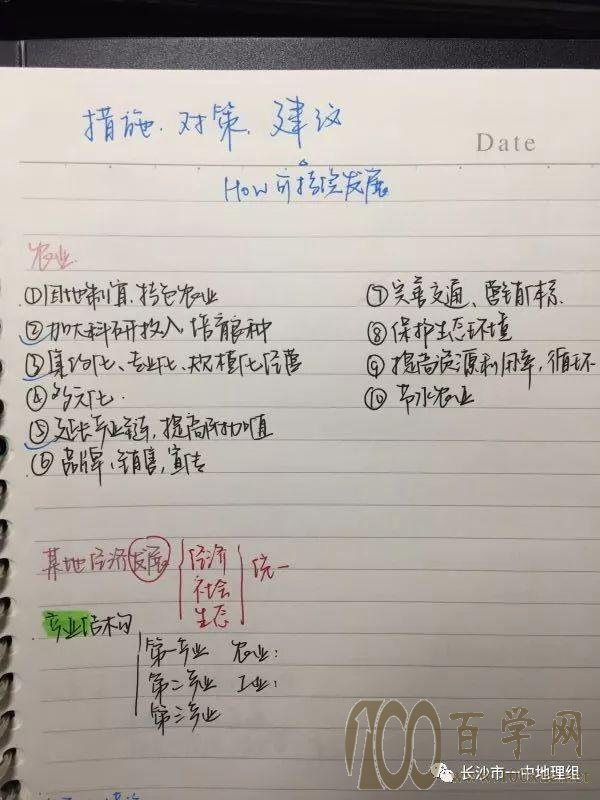 措施、对策、建议
Date
How 可持续发展
农业
①因地制宜、特色农业
②加大科研投入 培育良种
③集约化、专业化、规模化经营
④多元化.
⑤延长产业链,提高附加值
⑥品牌、销售,宣传
⑦完善交通、营销体系
⑧保护生态环境
⑨提高资源利用率,循环
⑩节水农业
某地经济发展 经济 社会 生态 统一
产业结构
第一产业 农业:
第二产业 工业:
第三产业
100百学网
长沙市一中地理组